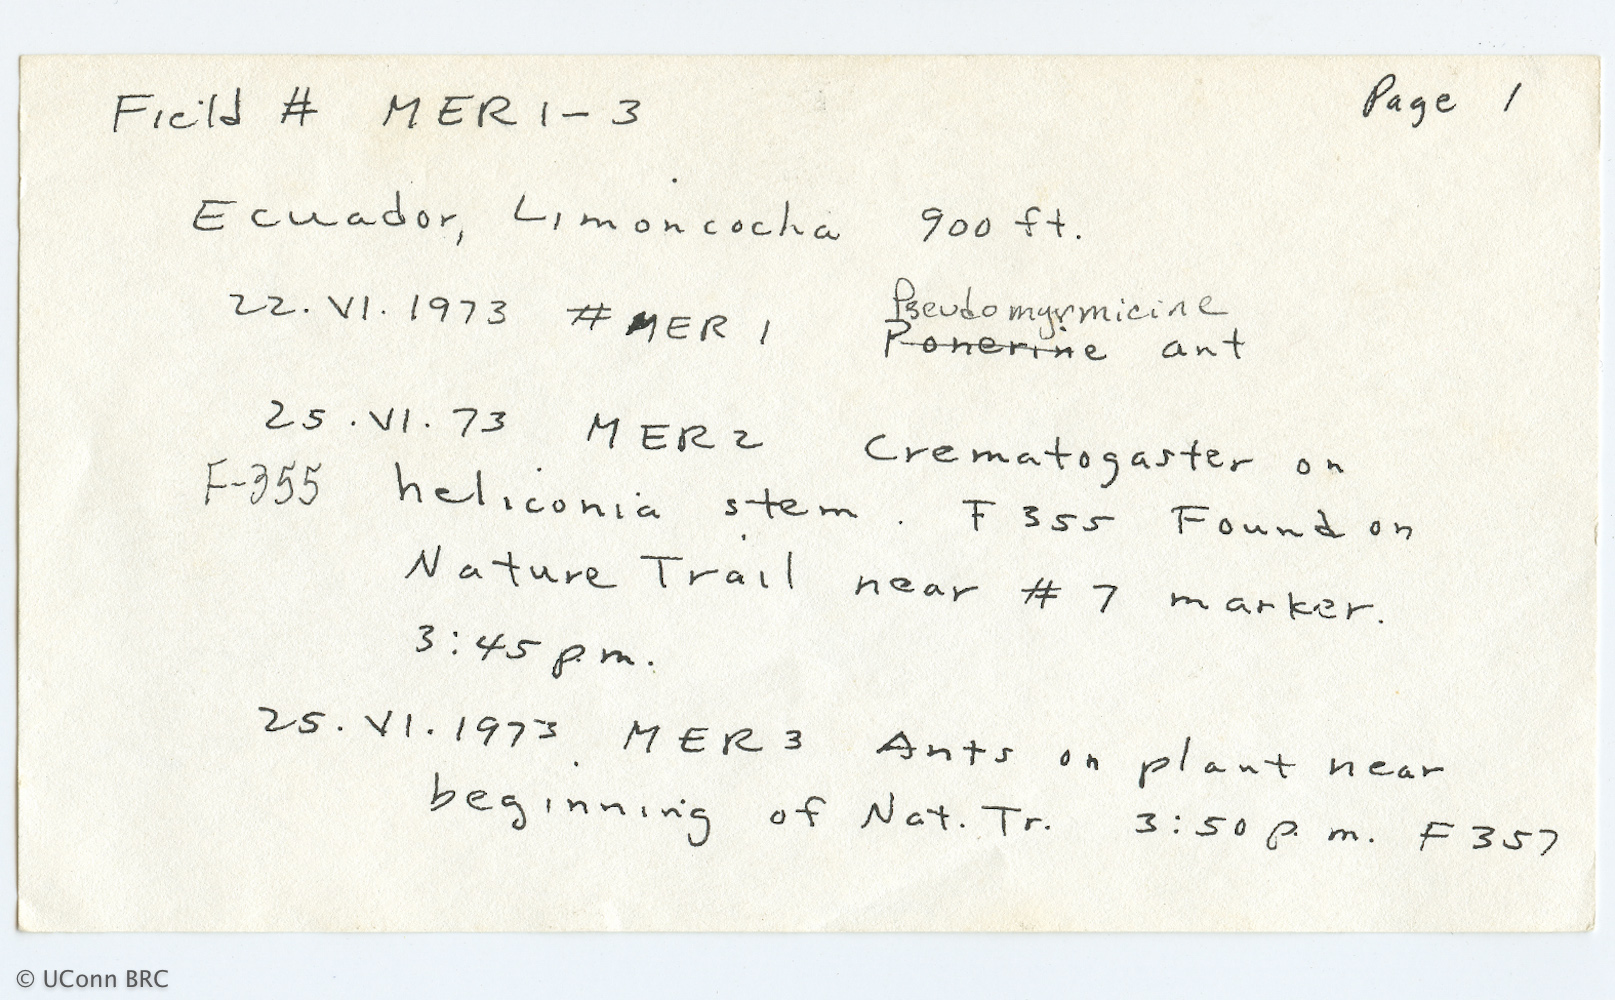 Field # MER 1-3 Page 1
Ecuador, Limoncocha 900 ft.
Pseudomyrmicine
22.VI.1973 # MER 1 Ponerine ant
25.VI.73 MER 2 Crematogaster on
F-355 heliconia stem. F 355 Found on
Nature Trail near # 7 marker.
3:45 p.m.
25.VI.1973 MER 3 Ants on plant near
beginning of Nat. Tr. 3:50 p.m. F 357
© UConn BRC